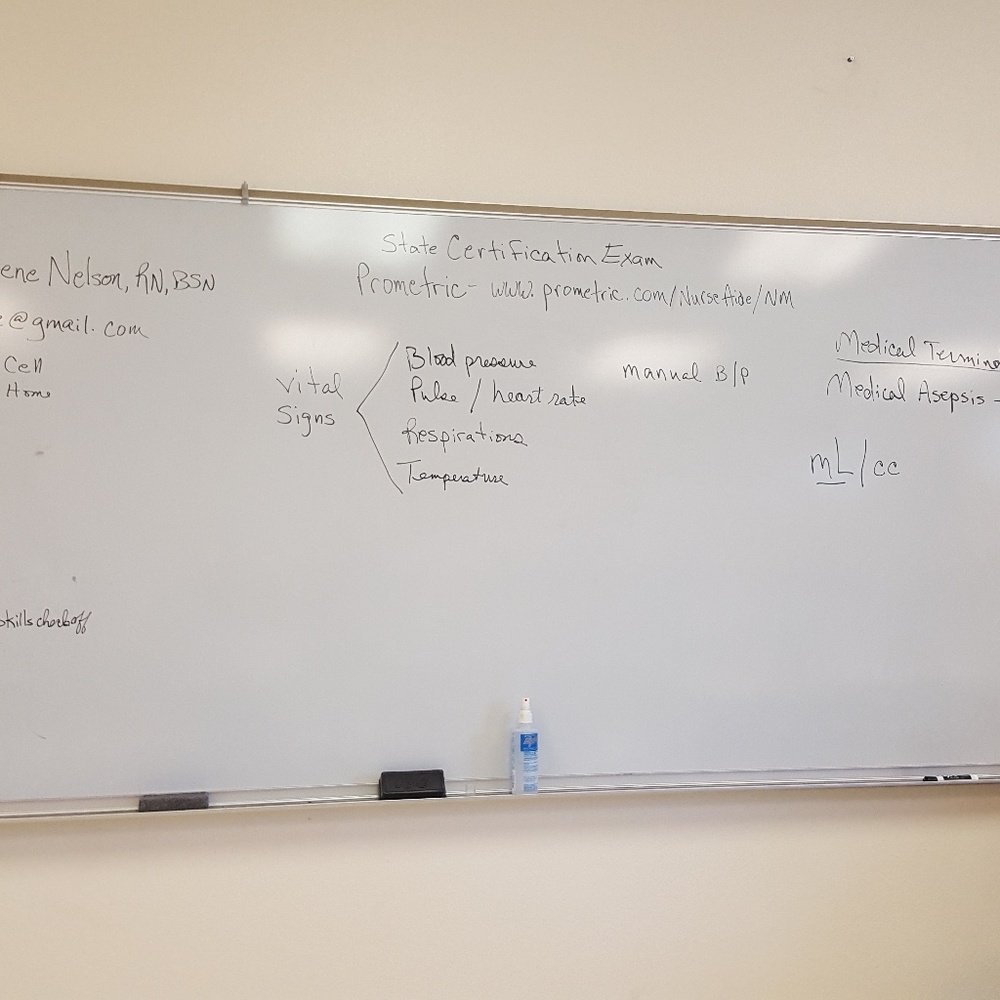 State Certification Exam
Prometric - www.prometric.com/NurseAide/NM
ene Nelson, RN, BSN
e@gmail.com
Cell
Home
Vital
Signs
Blood pressure
Pulse / heart rate
Respirations
Temperature
manual B/P
Medical Termino
Medical Asepsis -
mL/cc
skills checkoff